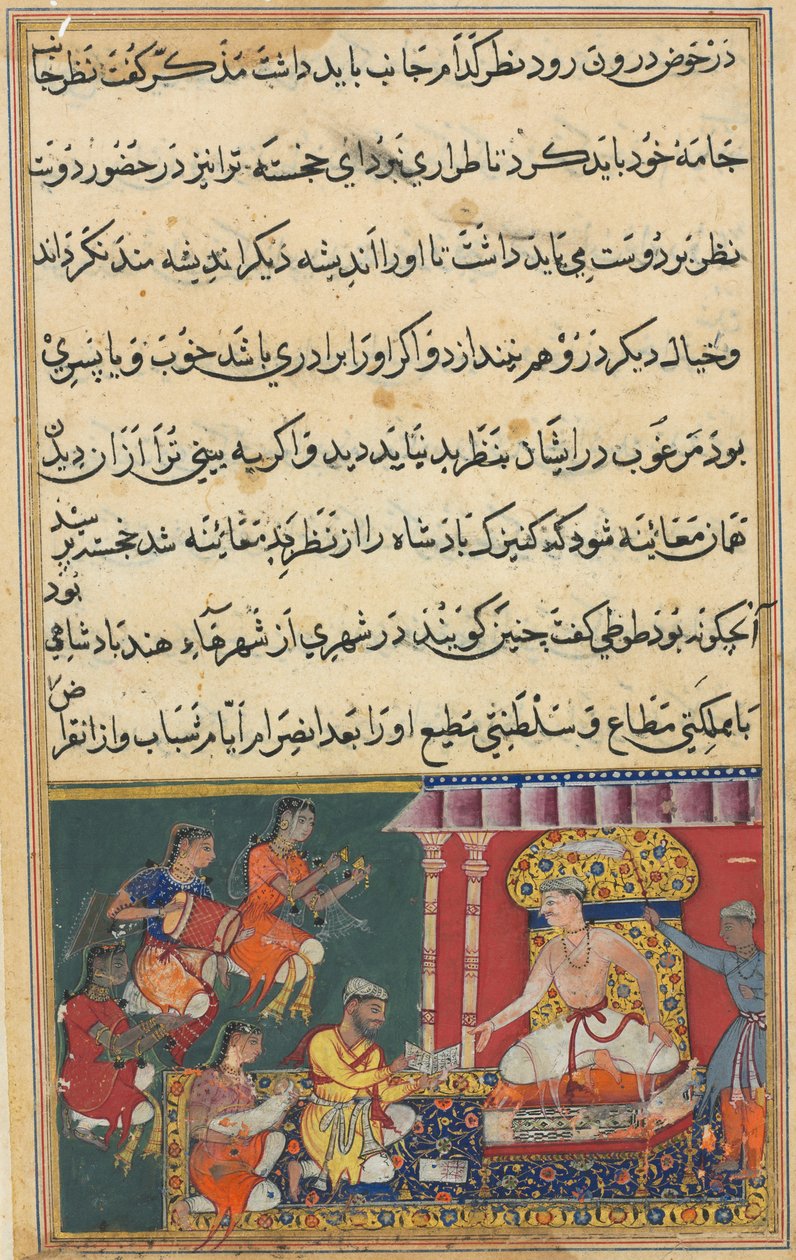 در حوض درون رود نظر کدام جانب باید داشت مذکّر کفت نظر جانب
جامهٔ خود باید کرد تا طراری نبرد ای خجسته ترا نیز در حضور دوست
نظر بر دوست می باید داشت تا او را اندیشه دیکر اندیشه مند نکرداند
و خیال دیکر در وهم نیندازد و اکر او را برادری باشد خوب و یا پسری
بود مرغوب در ایشان بنظر بد نباید دید و اکر به بینی ترا از ان دیدن
همان معائینه شود که کنیزک بادشاه را از نظر بد معائینه شد خجسته پرسید
آنچکونه بود طوطی کفت چنین کویند در شهری از شهرهاء هند بادشاهی بود
با مملکتی مطاع و سلطنتی مطیع او را بعد انصرام ایّام شباب و از انقراض